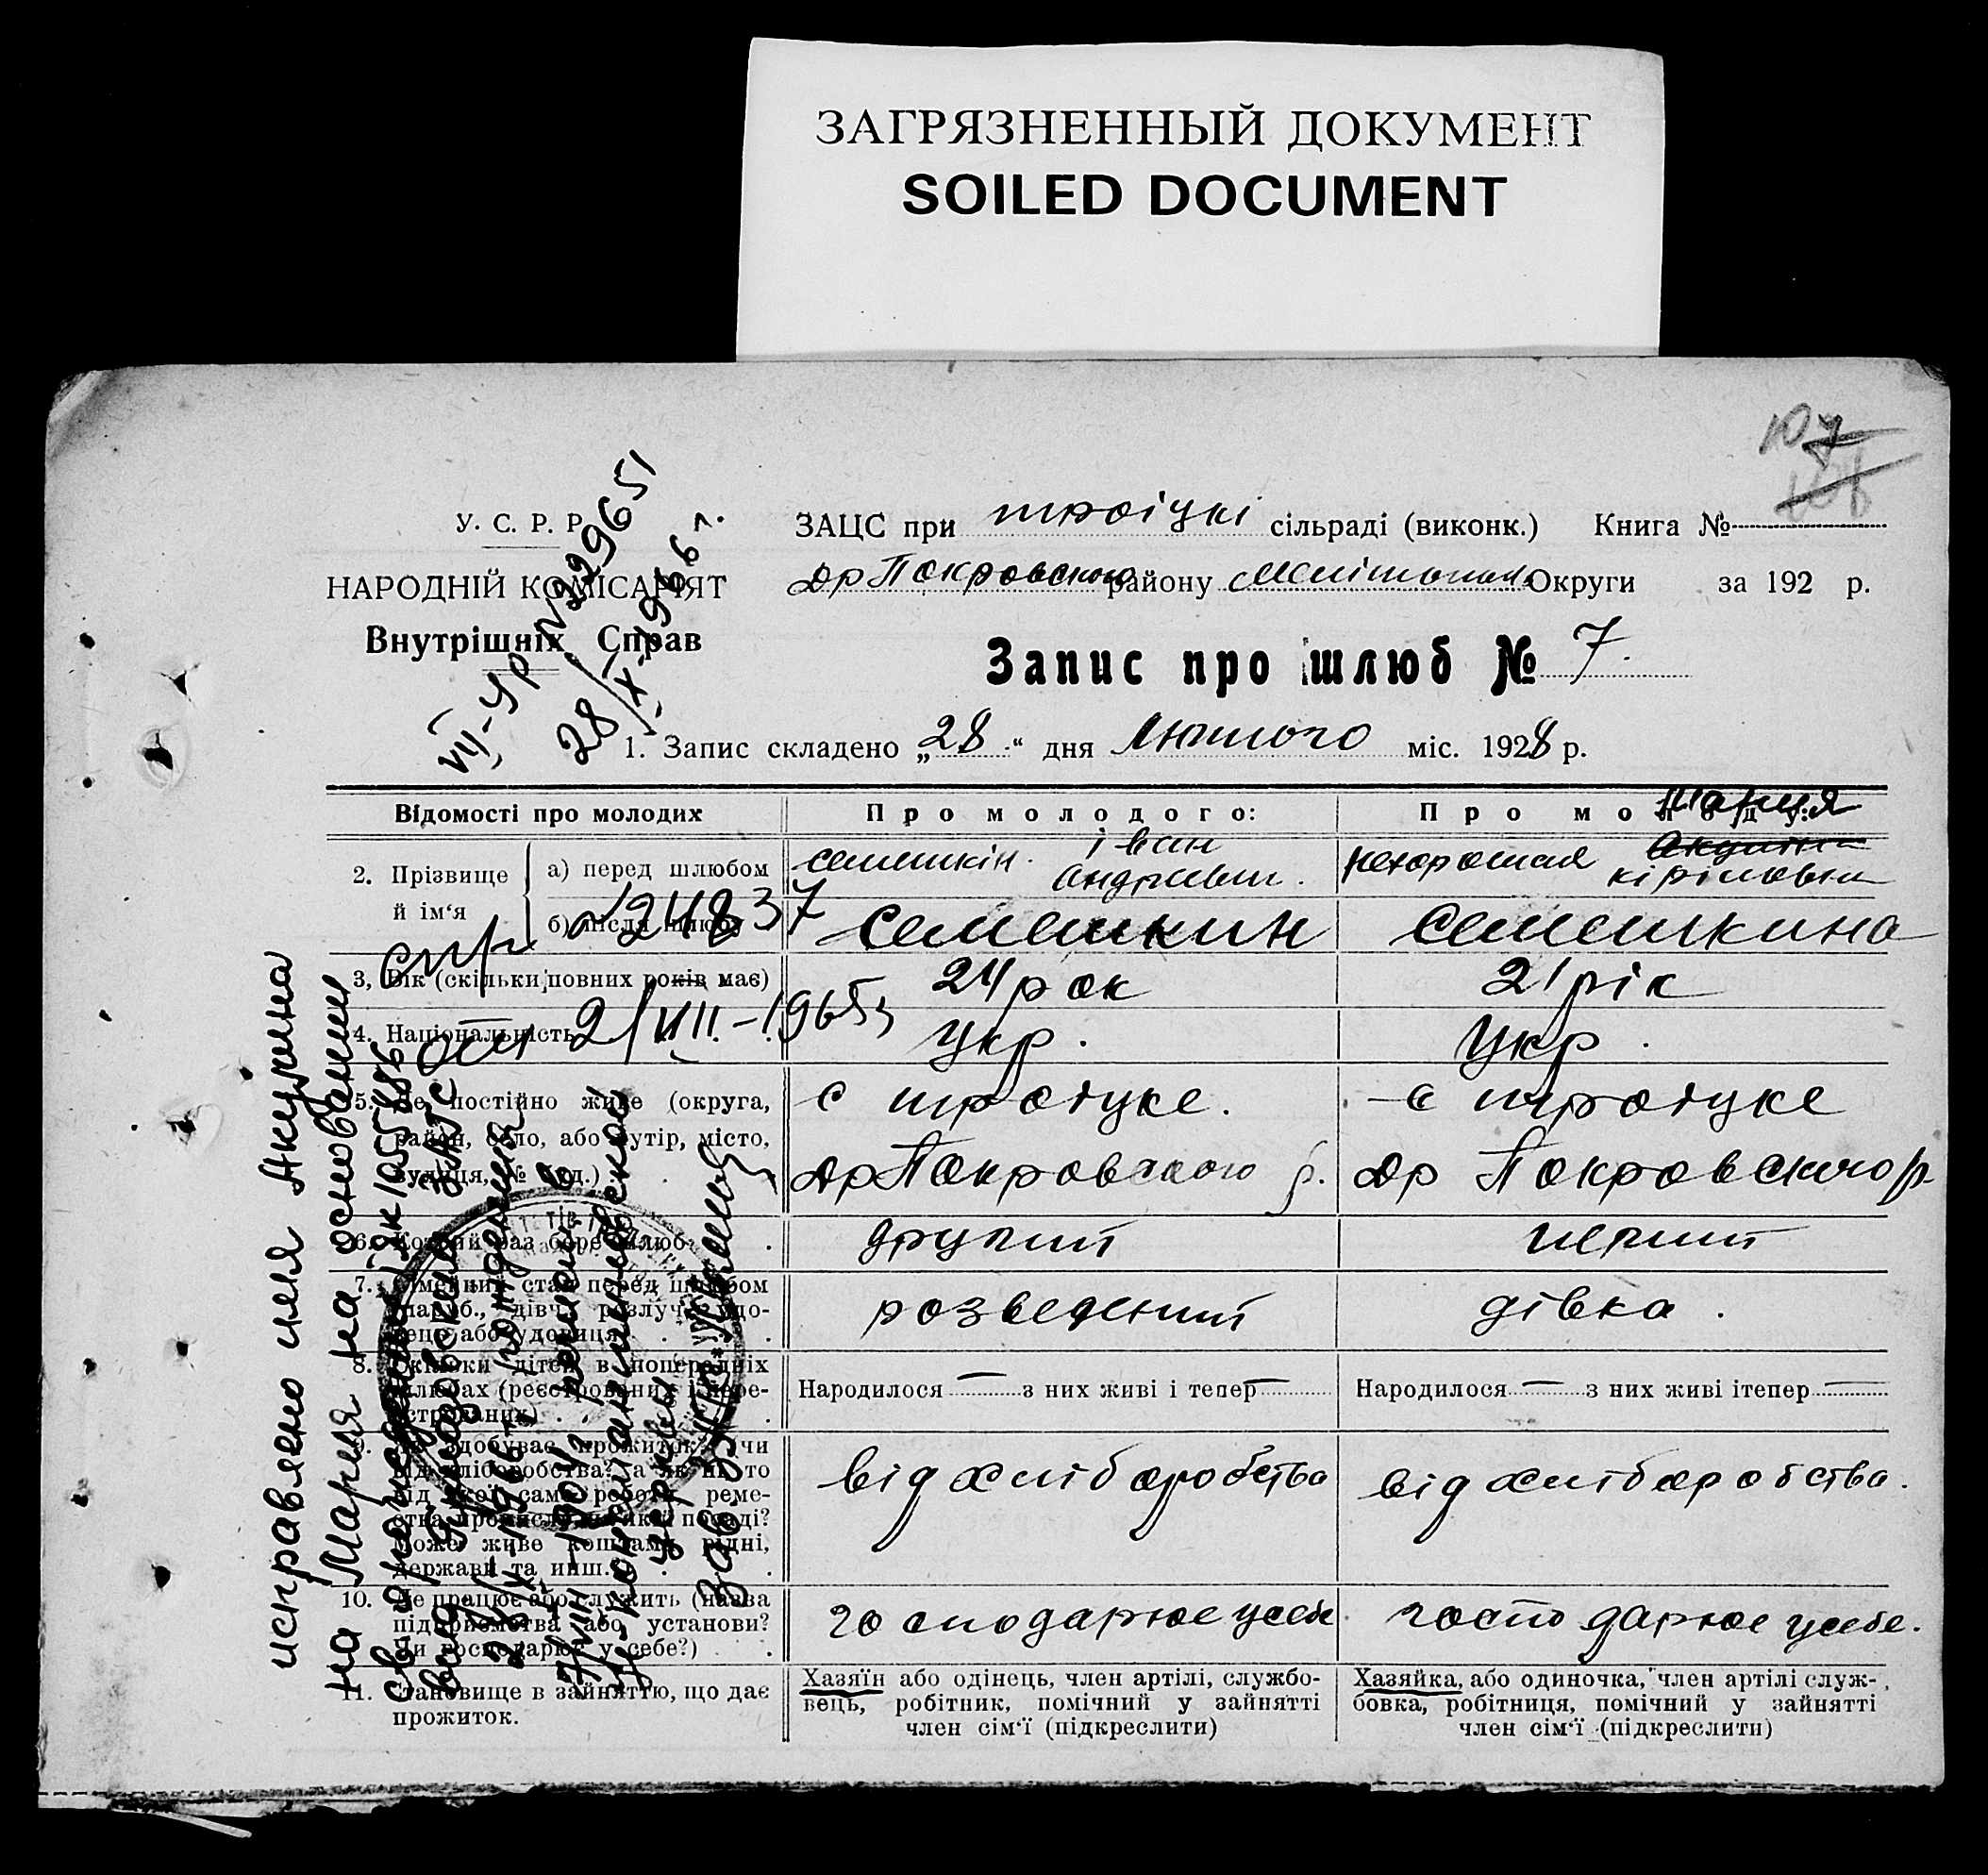 ЗАГРЯЗНЕННЫЙ ДОКУМЕНТ
SOILED DOCUMENT
107
У. С. Р. Р.
НАРОДНІЙ КОМІСАРІЯТ
Внутрішніх Справ
ЗАЦС при троіцкі сільраді (виконк.) Книга №
Др Покровського району Округи за 192 р.
Запис про шлюб № 7.
1. Запис складено „28“ дня Лютого міс. 1928 р.
VII-УР №229651
28/X-1966 г.
Відомості про молодих
Про молодого:
Про молоду:
2. Прізвище й ім‘я
а) перед шлюбом
семешкін. іван
Андрієвич.
Мария
нехорошая Акулина
кіріловна
б) після шлюбу
Семешкин
Семешкина
спр №24837
от 2/VIII-1965
3, Вік (скільки повних років має)
24 рок
21 рік
4. Національність
Укр.
Укр.
5. Де постійно живе (округа,
район, село, або хутір, місто,
вулиця, № буд.)
с троіцке.
Др Покровського р.
с троіцке
Др Покровского р.
6. Котрий раз бере шлюб
другий
перший
7. Сімейний стан перед шлюбом
(паруб., дівч., розлуч., удо-
вець або удовиця)
розведений
дівка.
8. Скільки дітей в попередніх
шлюбах (реєстрованих і нере-
єстрованих)
Народилося — з них живі і тепер —
Народилося — з них живі ітепер —
9. Де здобуває прожиток? чи
від хліборобства? а як ні, то
від якої саме роботи, реме-
ства промислу, на якій посаді?
Може живе коштами рідні,
держави та инш.
від хліборобства
від хліборобства.
10. Де працює або служить (назва
підприємства або установи?
Чи господарює у себе?)
господарює усебе.
господарює усебе.
11. Становище в зайняттю, що дає
прожиток.
Хазяїн або одінець, член артілі, службо-
вець, робітник, помічний у зайнятті
член сім‘ї (підкреслити)
Хазяйка, або одиночка, член артілі служ-
бовка, робітниця, помічний у зайнятті
член сім‘ї (підкреслити)
исправлено имя Акулина
на Мария на основании
св о рождении ІЯк 1055486
2/X-1967
церквы
Зав.